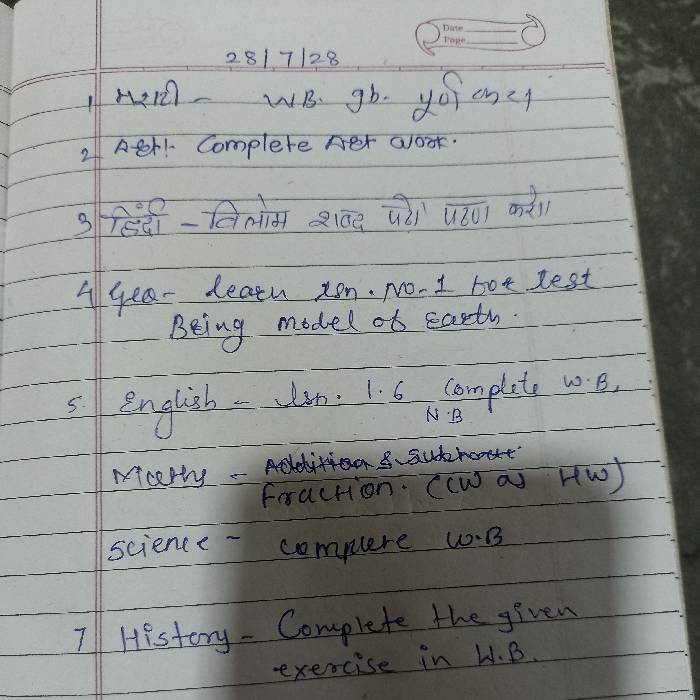 Date
Page
28/7/28
1 मराठी - WB. gb. पूर्ण करा
2 Art:- Complete Art work.
3 हिंदी - विलोम शब्द पढो पठण करो।
4 Geo- learn lsn. No-1 for test
Being model of Earth.
5. English - lsn. 1.6 Complete W.B.
N.B
Maths - Addition & Subtract
fraction. (CW as HW)
Science - complete W.B
7 History - Complete the given
exercise in W.B.